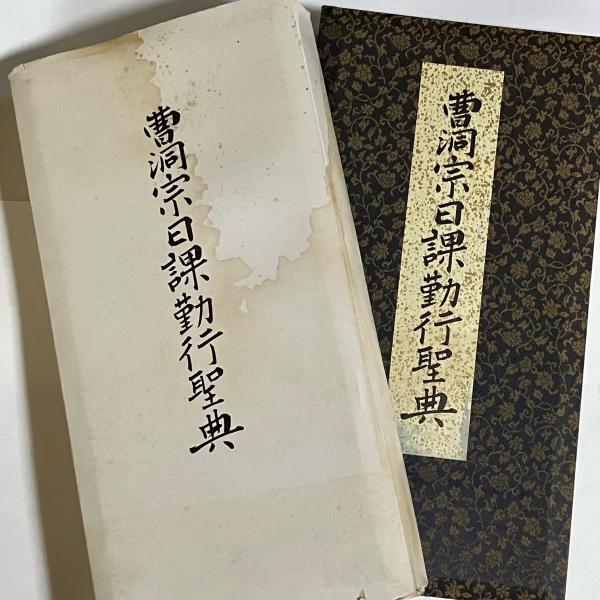 曹洞宗日課勤行聖典
曹洞宗日課勤行聖典